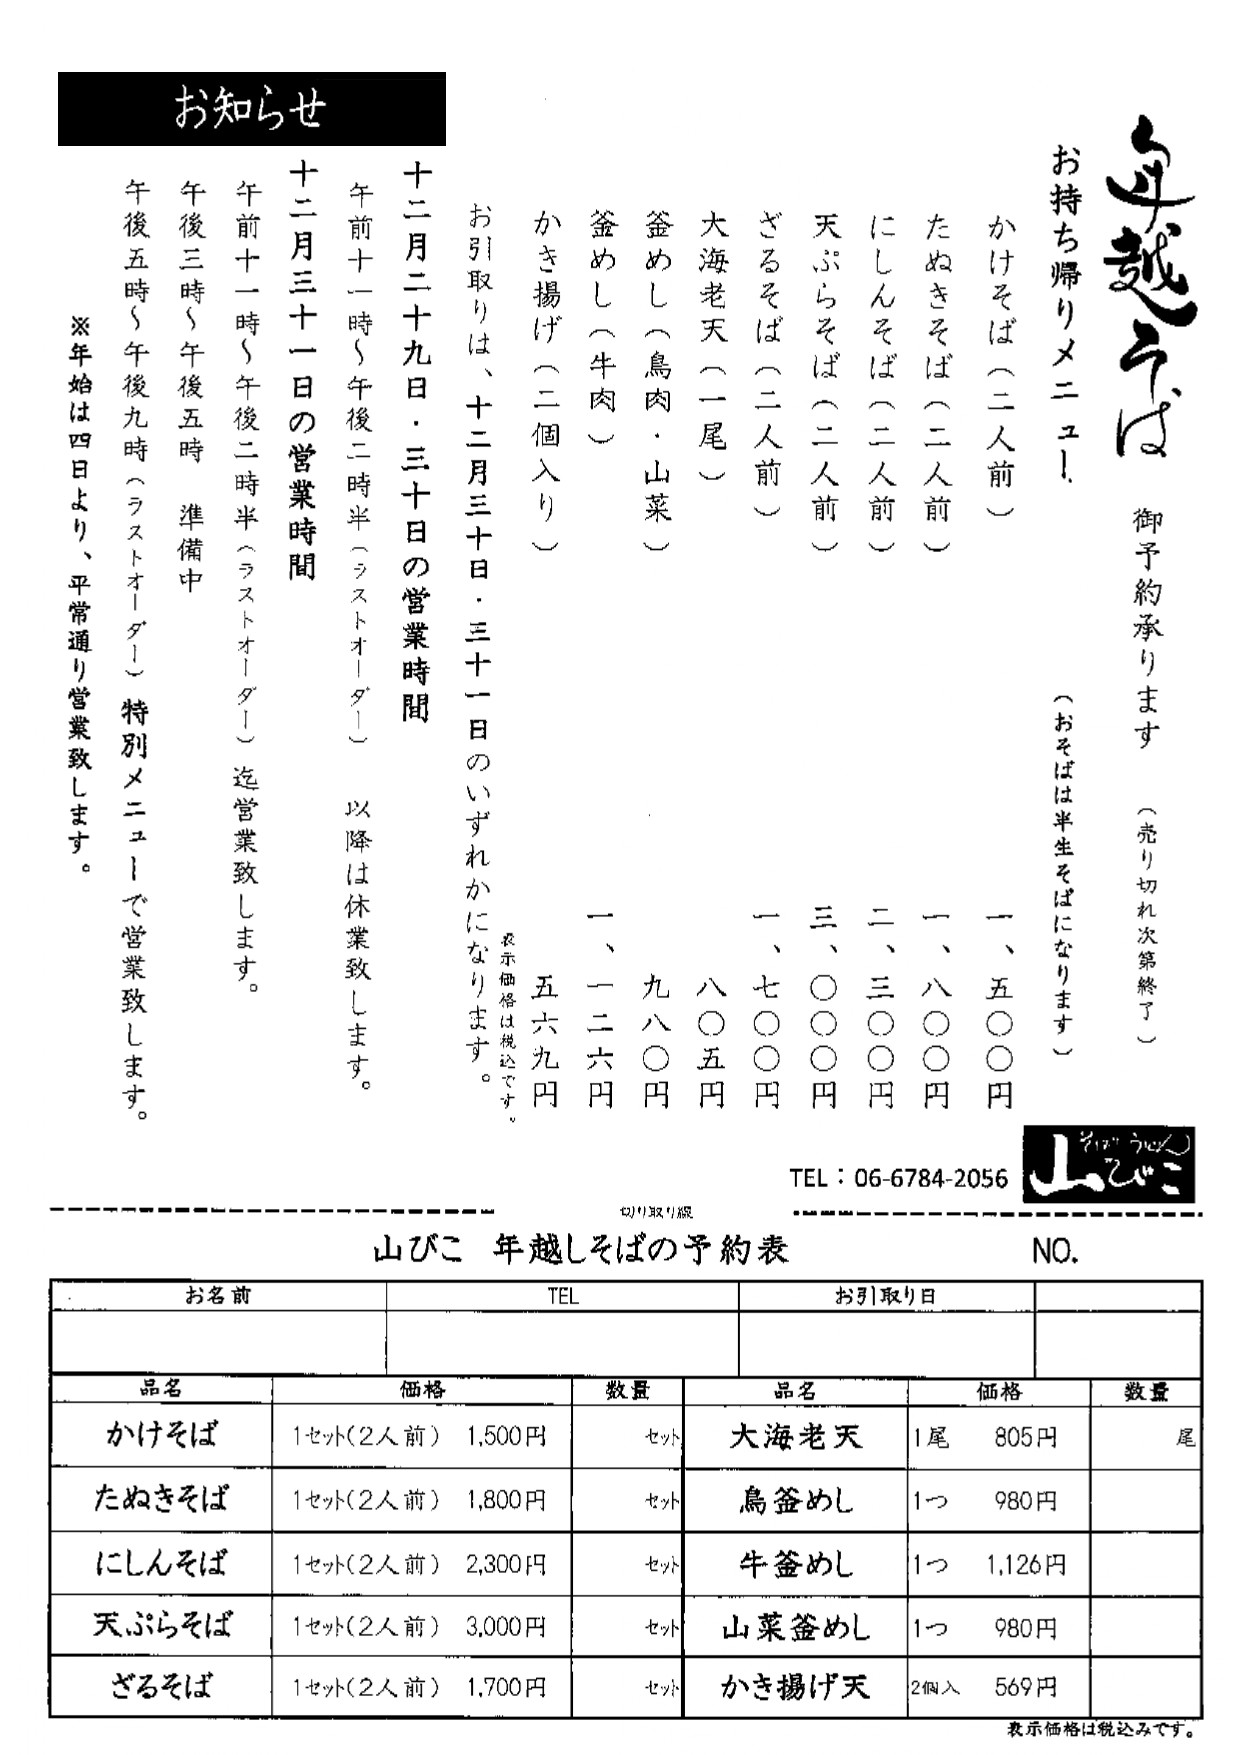 年越そば 御予約承ります (売り切れ次第終了)
お持ち帰りメニュー (おそばは半生そばになります)
かけそば(二人前) 一、五〇〇円
たぬきそば(二人前) 一、八〇〇円
にしんそば(二人前) 二、三〇〇円
天ぷらそば(二人前) 三、〇〇〇円
ざるそば(二人前) 一、七〇〇円
大海老天(一尾) 八〇五円
釜めし(鳥肉・山菜) 九八〇円
釜めし(牛肉) 一、一二六円
かき揚げ(二個入り) 五六九円
表示価格は税込です。
お引取りは、十二月三十日・三十一日のいずれかになります。
お知らせ
十二月二十九日・三十日の営業時間
午前十一時〜午後二時半(ラストオーダー) 以降は休業致します。
十二月三十一日の営業時間
午前十一時〜午後二時半(ラストオーダー)迄営業致します。
午後三時〜午後五時 準備中
午後五時〜午後九時(ラストオーダー)特別メニューで営業致します。
※年始は四日より、平常通り営業致します。
TEL：06-6784-2056
そば うどん
山びこ
切り取り線
山びこ 年越しそばの予約表 NO.
お名前 TEL お引取り日
品名 価格 数量 品名 価格 数量
かけそば 1セット(2人前) 1,500円 セット 大海老天 1尾 805円 尾
たぬきそば 1セット(2人前) 1,800円 セット 鳥釜めし 1つ 980円
にしんそば 1セット(2人前) 2,300円 セット 牛釜めし 1つ 1,126円
天ぷらそば 1セット(2人前) 3,000円 セット 山菜釜めし 1つ 980円
ざるそば 1セット(2人前) 1,700円 セット かき揚げ天 2個入 569円
表示価格は税込みです。